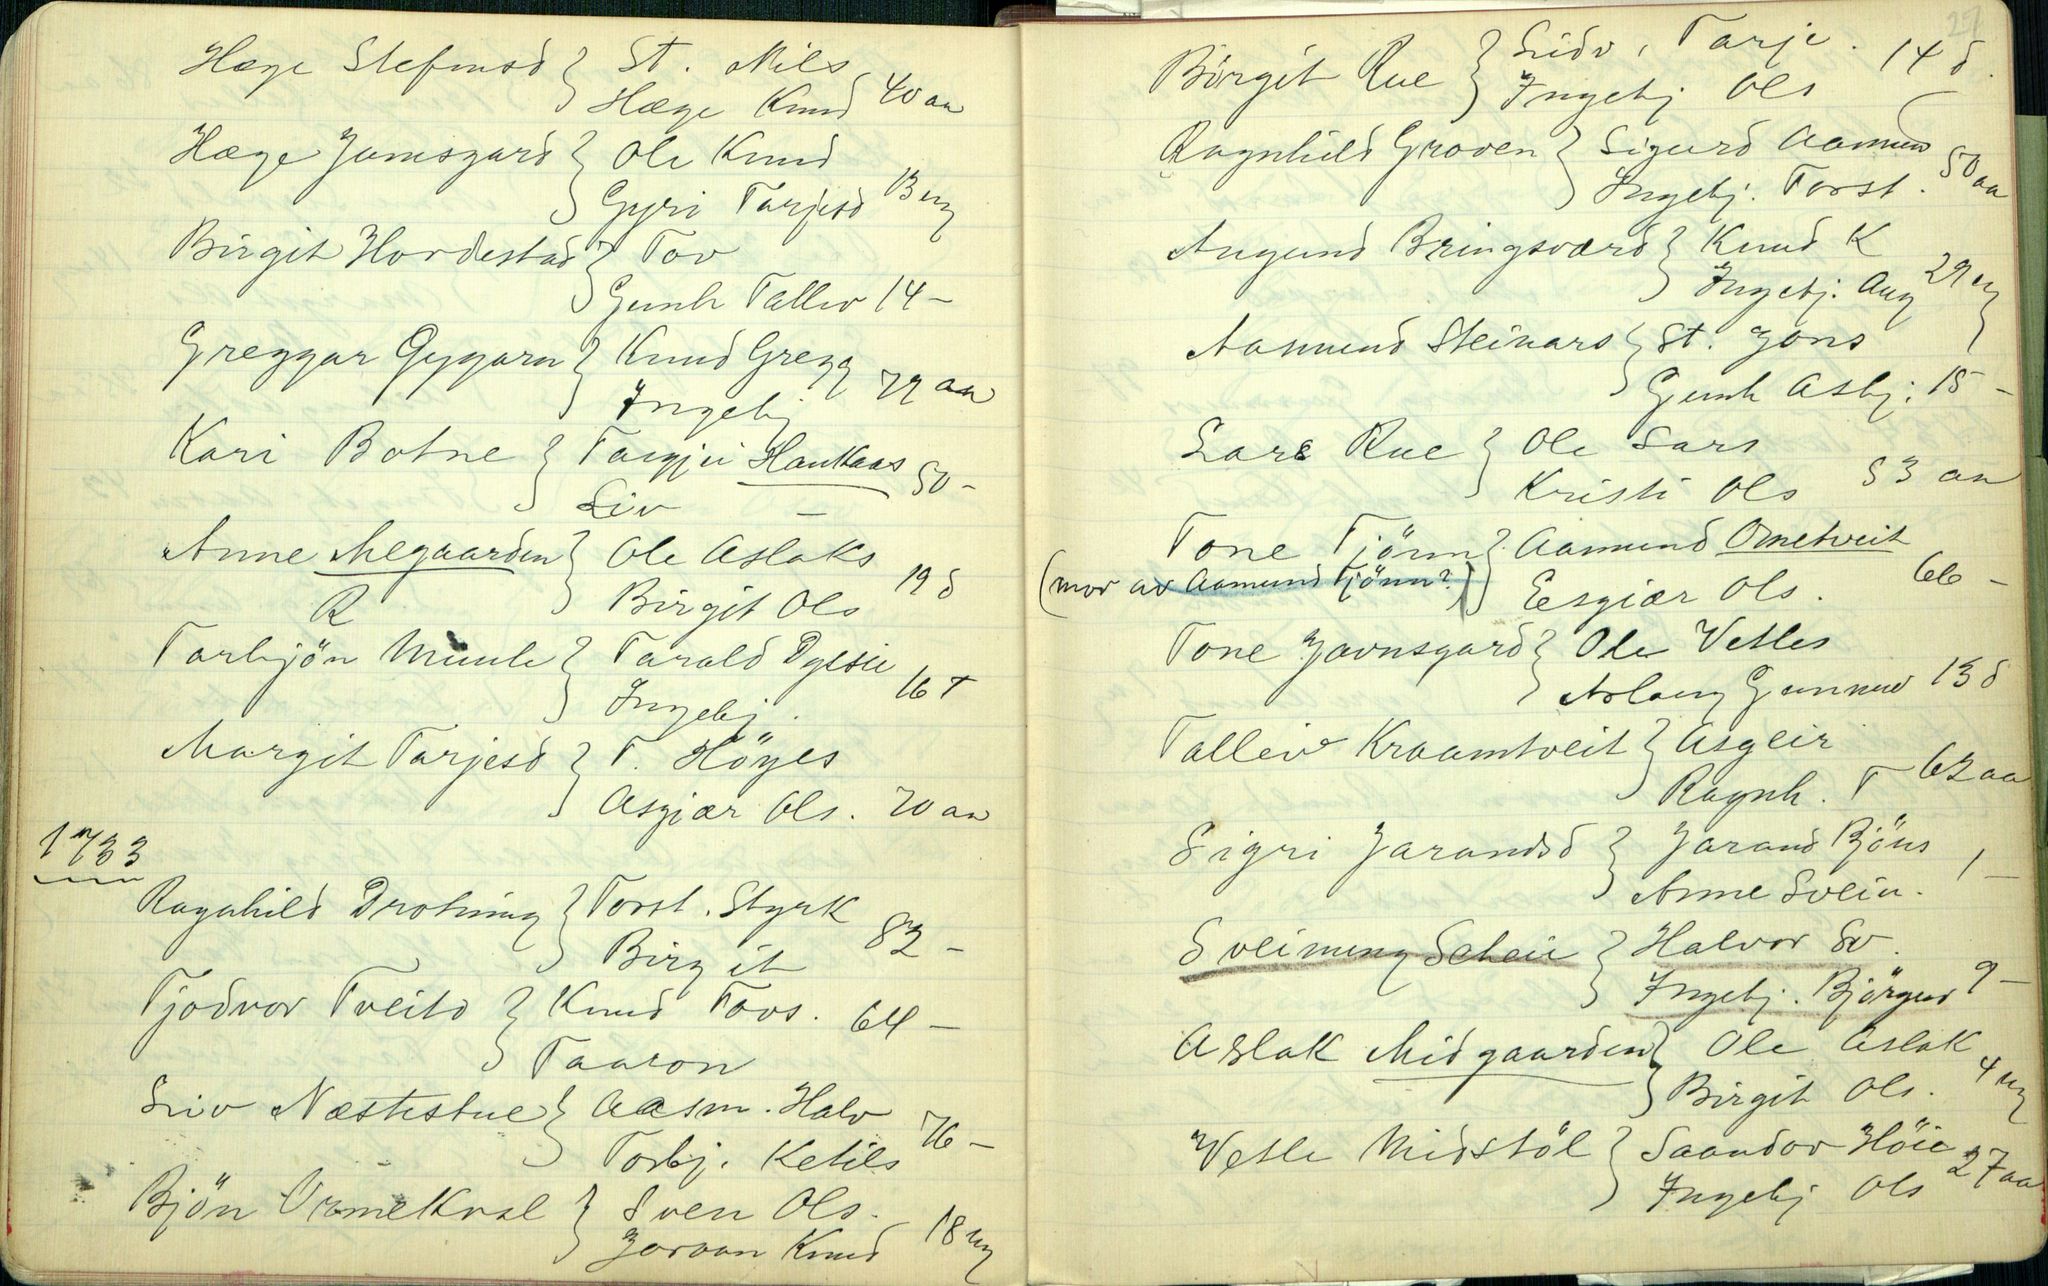 Hæge Stefinsd } St. Nils
Hæge Knud 40 aa
Hæge Jamsgard } Ole Knud
Gyri Tarjesd 13 ug
Birgit Hordestad } Tov
Gunh Tallev 14 –
Greggar Gygarn } Knud Gregg
Ingebj 72 aa
Kari Botne } Targjei Haukaas
Liv – 50 –
Anne Negaarden } Ole Aslaks
R Birgit Ols 19 d
Torbjön Mule } Tarald
Ingebj. 16 t
Margit Tarjesd } T. Höyes
Asgjær Ols. 70 aa
1733
Ragnhild Drotning } Torst. Styrk
Birgit 82 –
Tjodvor Tveito } Knud Tovs. 64 –
Taaron
Liv Næstestue } Aasm. Halv
Torbj. Ketils 76 –
Bjön Ormekval } Sven Ols.
Joraan Knud 18 ug
27
Börgit Rue } Eidv, Tarje. 14 d.
Ingebj Ols
Ragnhild Groven } Sigurd Aamun
Ingebj. Torst. 50 aa
Augund Bringsværd } Knud K
Ingebj. Aug 29 ug
Aamund Steinars } St. Jons
Gunh Asbj. 15 –
Lars Rue } Ole Lars
Kristi Ols 53 aa
Tone Tjönn } Aamund Ometveit
(mor av Aamund Tjönn?) Esgiær Ols. 66 –
Tone Javnsgard } Ole Vetles
Aslaug Gunnuv 13 d
Talleiv Kraamtveit } Asgeir
Ragnh. T 62 aa
Sigri Jarandsd } Jarand Björs
Anne Svein. 1 –
Sveinung Scheie } Halvor Sv.
Ingebj. Björgud 9 –
Aslak Midgaarden } Ole Aslak
Birgit Ols. 4 ug
Vetle Midstöl } Saandor Höie
Ingebj Ols 27 aa